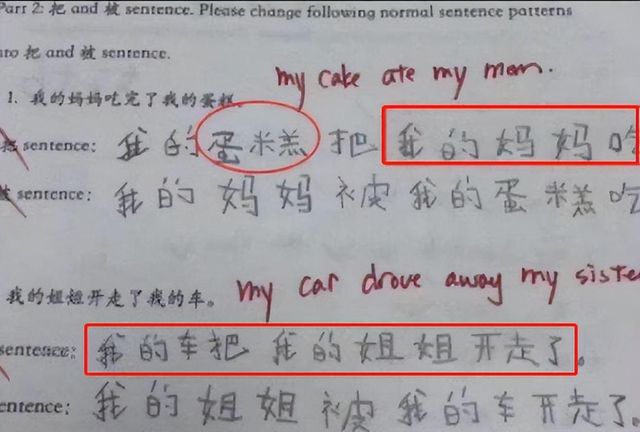 Part 2: 把 and 被 sentence. Please change following normal sentence patterns
into 把 and 被 sentence.
my cake ate my mom.
1. 我的妈妈吃完了我的蛋糕。
把 sentence: 我的蛋糕把我的妈妈吃
被 sentence: 我的妈妈被我的蛋糕吃
my car drove away my siste
我的姐姐开走了我的车。
sentence: 我的车把我的姐姐开走了。
entence: 我的姐姐被我的车开走了.